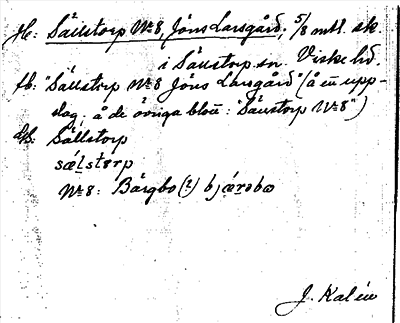 H: Sällstorp Nr 8, Jöns Larsgård, 5/8 mtl. sk.
i Sällstorp sn. Viske hd.
fb: "Sällstorp Nr 8 Jöns Larsgård" (å en upp-
slag, å de övriga blott: "Sällstorp Nr 8")
Sällstorp
sælstɘrp
Nr 8: Bärgbo (?) bjærəbo
J. Kalén